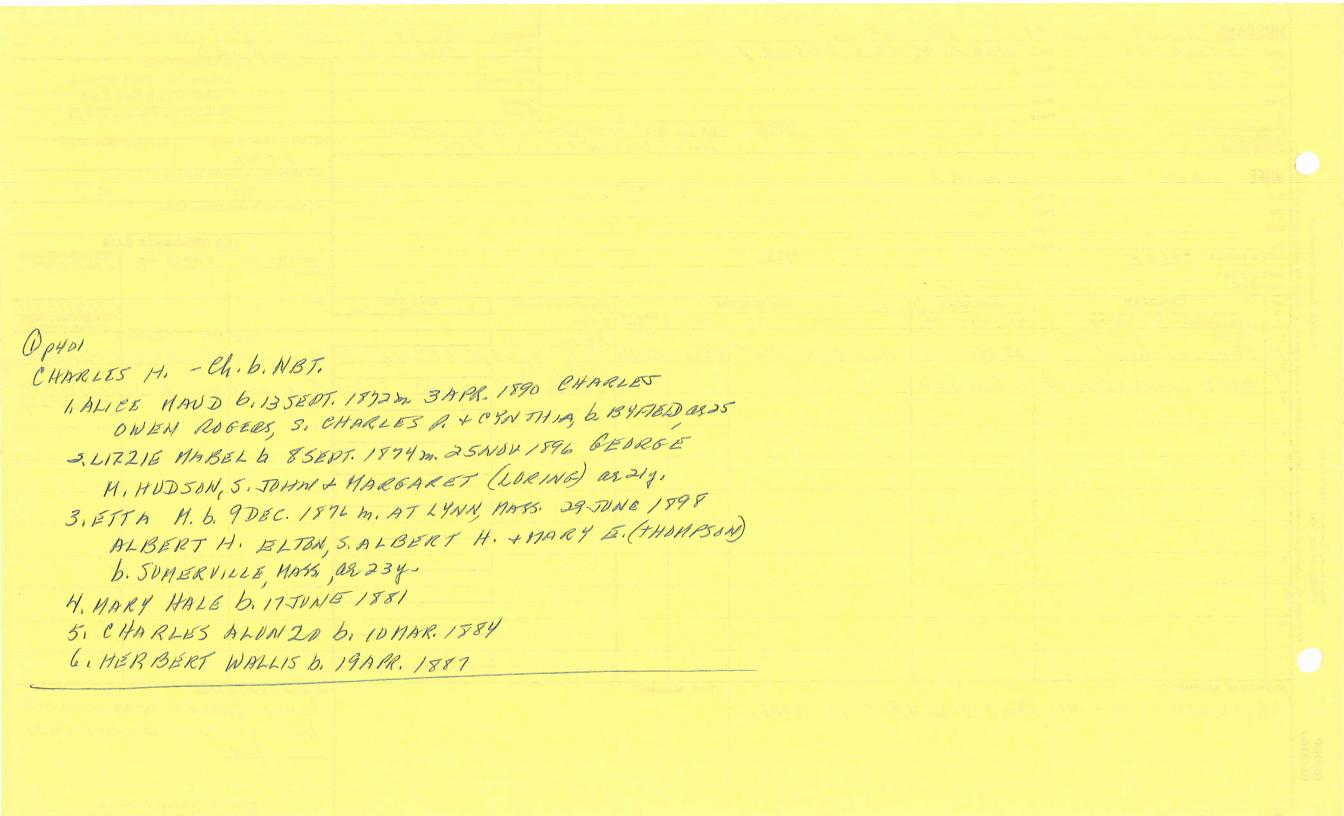 ① p401
CHARLES H. - Ch. b. NBT.
1. ALICE MAUD b. 13 SEPT. 1872 m 3 APR. 1890 CHARLES
OWEN ROGERS, S. CHARLES P. + CYNTHIA, b. BYFIELD, ag 25
2. LIZZIE MABEL b 8 SEPT. 1874 m. 25 NOV 1896 GEORGE
M. HUDSON, S. JOHN + MARGARET (LORING) ag 21y.
3. ETTA M. b. 9 DEC. 1876 m. AT LYNN, MASS. 29 JUNE 1898
ALBERT H. ELTON, S. ALBERT H. + MARY E. (THOMPSON)
b. SOMERVILLE, MASS, ag 23y.
4. MARY HALE b. 17 JUNE 1881
5. CHARLES ALONZO b. 10 MAR. 1884
6. HERBERT WALLIS b. 19 APR. 1887